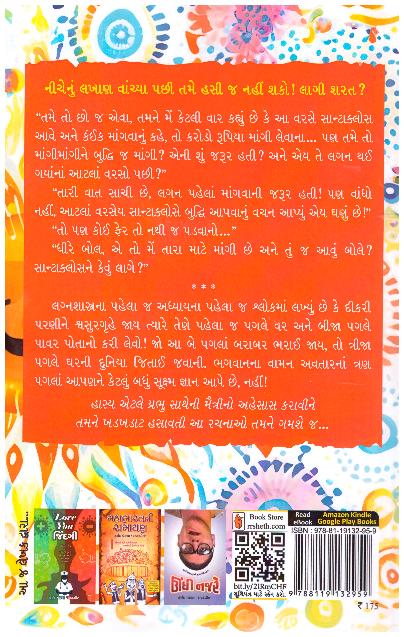 નીચેનું લખાણ વાંચ્યા પછી તમે હસી જ નહીં શકો! લાગી શરત?
“તમે તો છો જ એવા, તમને મેં કેટલી વાર કહ્યું છે કે આ વરસે સાન્ટાક્લોસ
આવે અને કંઈક માંગવાનું કહે, તો કરોડો રૂપિયા માંગી લેવાના... પણ તમે તો
માંગીમાંગીને બુદ્ધિ જ માંગી? એની શું જરૂર હતી? અને એય તે લગન થઈ
ગયાંનાં આટલાં વરસો પછી?”
“તારી વાત સાચી છે, લગન પહેલાં માંગવાની જરૂર હતી! પણ વાંધો
નહીં, આટલાં વરસેય સાન્ટાક્લોસે બુદ્ધિ આપવાનું વચન આપ્યું એય ઘણું છે!”
“તો પણ કોઈ ફેર તો નથી જ પડવાનો...”
“ધીરે બોલ, એ તો મેં તારા માટે માંગી છે અને તું જ આવું બોલે?
સાન્ટાક્લોસને કેવું લાગે?”
***
લગ્નશાસ્ત્રના પહેલા જ અધ્યાયના પહેલા જ શ્લોકમાં લખ્યું છે કે દીકરી
પરણીને શ્વસુરગૃહે જાય ત્યારે તેણે પહેલા જ પગલે વર અને બીજા પગલે
પાવર પોતાનો કરી લેવો! જો આ બે પગલાં બરાબર ભરાઈ જાય, તો ત્રીજા
પગલે ઘરની દુનિયા જિતાઈ જવાની. ભગવાનના વામન અવતારનાં ત્રણ
પગલાં આપણને કેટલું બધું સૂક્ષ્મ જ્ઞાન આપે છે, નહીં!
હાસ્ય એટલે પ્રભુ સાથેની મૈત્રીનો અહેસાસ કરાવીને
તમને ખડખડાટ હસાવતી આ રચનાઓ તમને ગમશે જ...
આ જ લેખક દ્વારા...
Love
You
જિંદગી
મહાભારતની
રામાયણ
ત્રિધી નજરે
Book Store
rrsheth.com
bit.ly/2IRnCHR
Read
eBook
Amazon Kindle
Google Play Books
ISBN : 978-81-19132-95-9
9 788119 132959
₹ 175